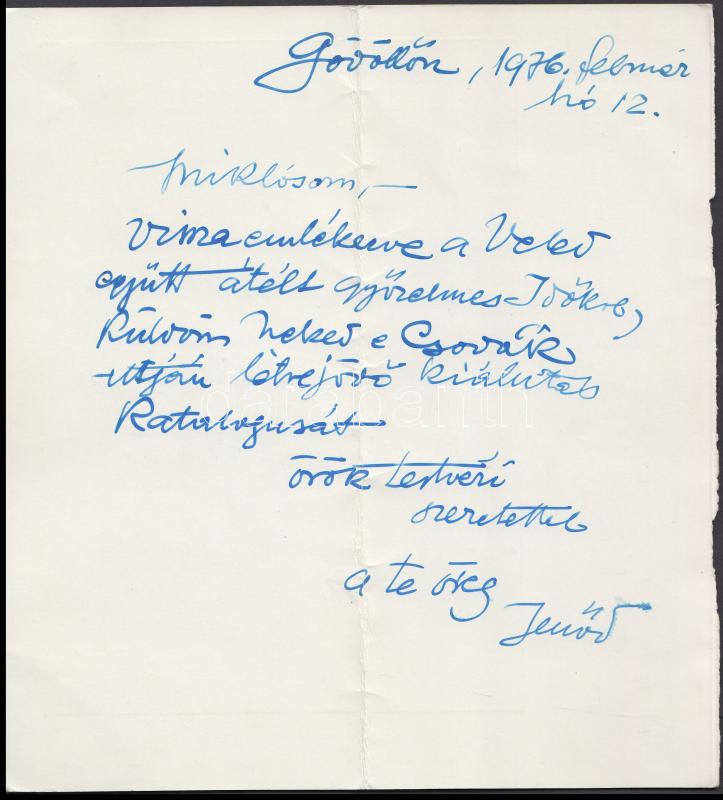 Gödöllőn, 1976. február
hó 12.
Miklósom, —
Visszaemlékezve a Veled
együtt átélt győzelmes Időkre,
Küldöm Neked e Csodák
útján létrejövő kiállítás
Katalogusát
örök testvéri
szeretettel
a te öreg
Jenőd
darabanth